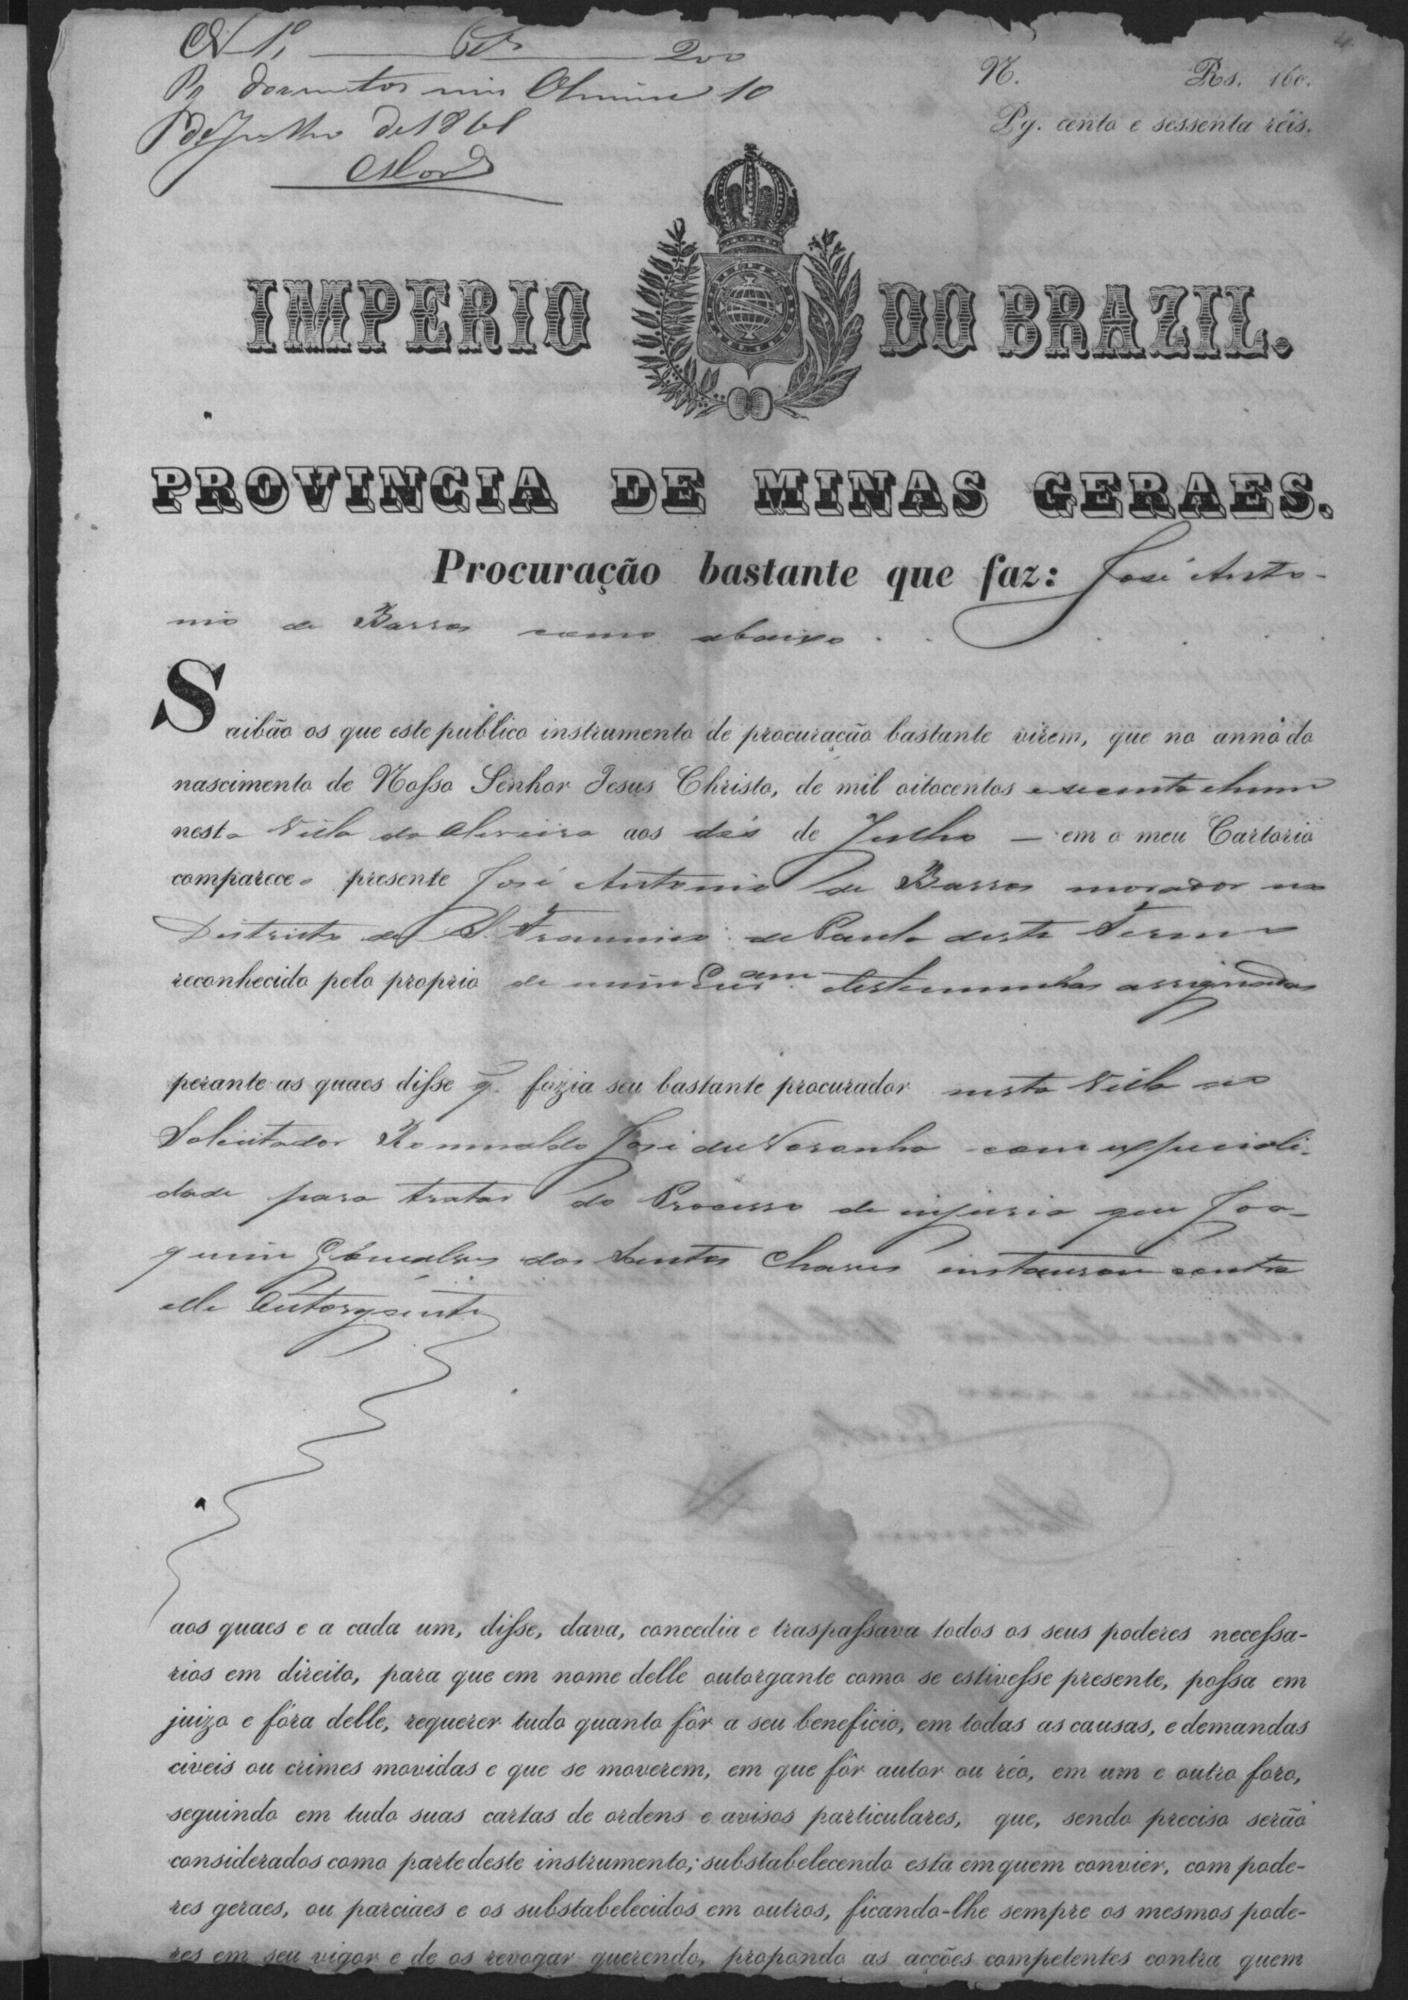 N 1. 200
Pg duzentos reis Oliveira 10
de Julho de 1861
4
N. Rs. 160.
Pg. cento e sessenta réis.
IMPERIO DO BRAZIL.
PROVINCIA DE MINAS GERAES.
Procuração bastante que faz: José Anto-
nio de Barros como abaixo . .
Saibão os que este publico instrumento de procuração bastante virem, que no anno do
nascimento de Nosso Senhor Jesus Christo, de mil oitocentos e secenta e hum
nesta Villa da Oliveira aos dés de Julho — em o meu Cartorio
comparece o presente José Antonio de Barros morador no
Districto de S. Francisco de Paula deste Termo
reconhecido pelo proprio de mim testemunhas assignadas
perante as quaes disse q. fazia seu bastante procurador nesta Villa ao
Solicitador Romualdo José de Noronha com especiali-
dade para tratar do Processo de injuria que Joa-
quim Gonçalves dos Santos Chaves instaurou contra
elle Outorgante
aos quaes e a cada um, disse, dava, concedia e traspassava todos os seus poderes necessa-
rios em direito, para que em nome delle outorgante como se estivesse presente, possa em
juizo e fóra delle, requerer tudo quanto fôr a seu beneficio, em todas as causas, e demandas
civeis ou crimes movidas e que se moverem, em que fôr autor ou réo, em um e outro foro,
seguindo em tudo suas cartas de ordens e avisos particulares, que, sendo preciso serão
considerados como parte deste instrumento; substabelecendo esta em quem convier, com pode-
res geraes, ou parciaes e os substabelecidos em outros, ficando-lhe sempre os mesmos pode-
res em seu vigor e de os revogar querendo, propondo as acções competentes contra quem